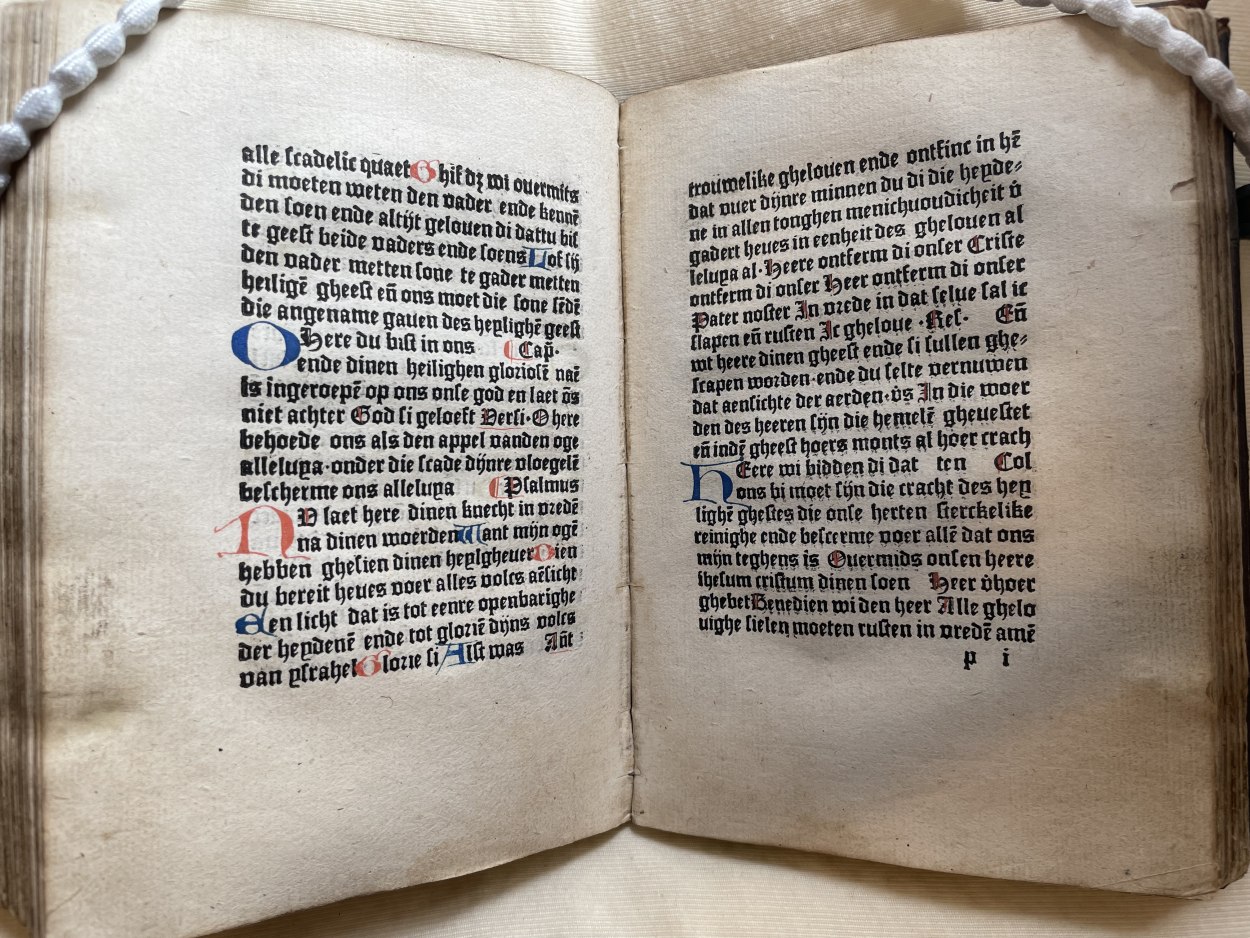 alle scadelic quaet Ghif dz wi ouermits
di moeten weten den vader ende kennē
den soen ende altijt gelouen di dattu bis
te geest beide vaders ende soens Lof sij
den vader metten sone te gader metten
heiligē gheest eñ ons moet die sone sēdē
die angename gauen des heylighē geest
O Here du bist in ons Cap·
ende dinen heilighen gloriosē naē
is ingeroepē op ons onse god en laet ōs
niet achter God si geloeft Versi· O here
behoede ons als den appel vanden oge
alleluya·onder die scade dijnre vloegelē
bescherme ons alleluya Psalmus
NV laet here dinen knecht in vredē
na dinen woerden Want mijn ogē
hebben ghesien dinen heylgheuer Dien
du bereit heues voer alles volcs aēsicht
Een licht dat is tot eenre openbarighe
der heydenē ende tot gloriē dijns volcs
van ysrahel Glorie si Alst was Añt
trouwelike ghelouen ende ontfinc in hē
dat vuer dijnre minnen du di die heyde⸗
ne in allen tonghen menichuoudicheit v̄
gadert heues in eenheit des ghelouen al
leluya al· Heere ontferm di onser Criste
ontferm di onser Heer ontferm di onser
Pater noster In vrede in dat selue sal ic
slapen eñ rusten Ic gheloue ·Res· Eñ
wt heere dinen gheest ende si sullen ghe⸗
scapen worden·ende du selte vernuwen
dat aensichte der aerden·v̄s In die woer
den des heeren sijn die hemelē gheuestet
eñ indē gheest hoers monts al hoer crach
HEere wi bidden di dat ten Col
ons bi moet sijn die cracht des hey
lighē ghestes die onse herten sterckelike
reinighe ende bescerme voer allē dat ons
mijn teghens is Ouermids onsen heere
ihesum cristum dinen soen Heer v̄hoer
ghebet Benedien wi den heer Alle ghelo
uighe sielen moeten rusten in vredē amē
p i